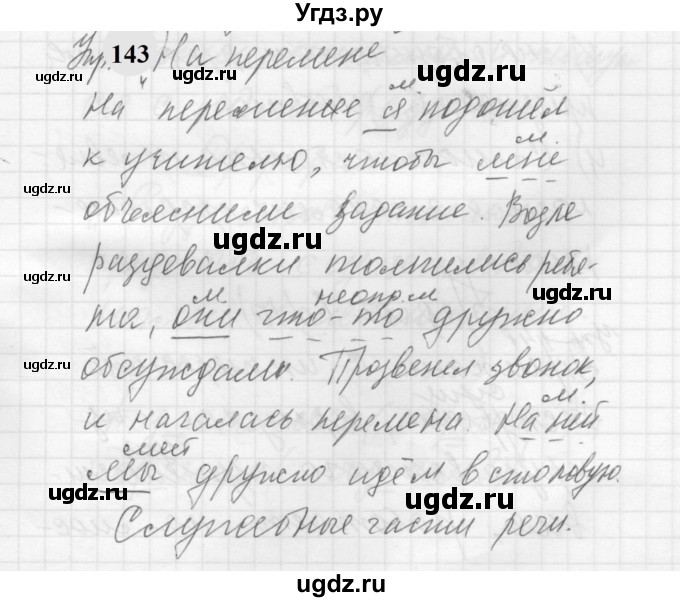 Угдз.ру
Упр. 143 На перемене
На перемене я подошёл
м
к учителю, чтобы мне
м.
объяснили задание. Возле
раздевалки толпились ребя-
та, они что-то дружно
м неопр. м
обсуждали. Прозвенел звонок,
и началась перемена. На ней
м.
мест
Мы дружно идём в столовую.
Служебные части речи.
ugdz.ru
ugdz.ru
ugdz.ru
ugdz.ru
ugdz.ru
ugdz.ru
ugdz.ru
ugdz.ru
ugdz.ru
ugdz.ru
ugdz.ru
ugdz.ru
ugdz.ru